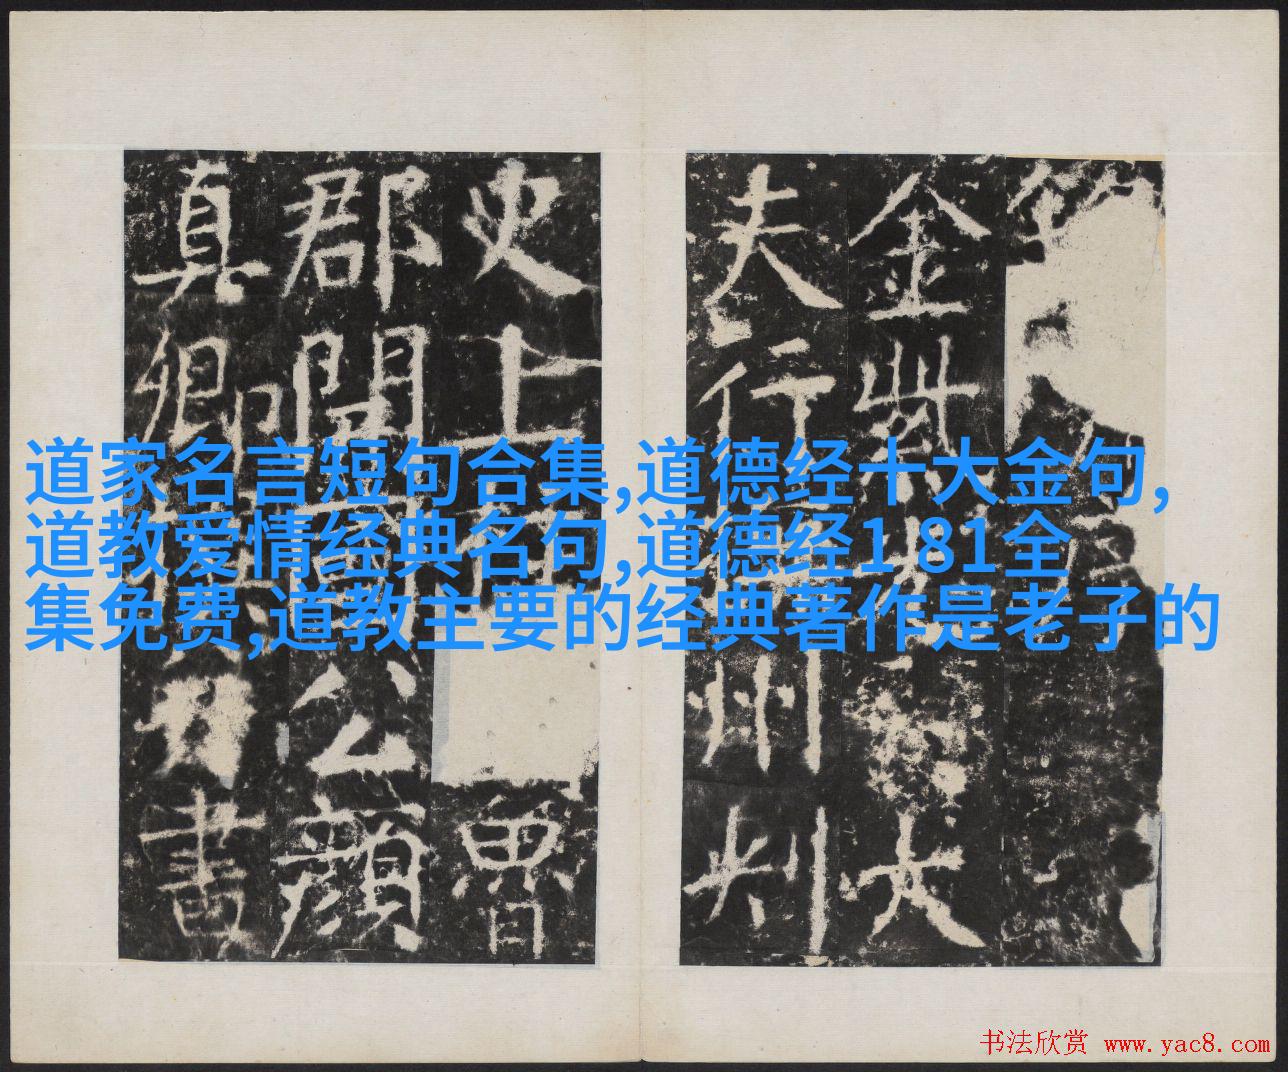 道家名言短句合集,道德经十大金句,
道教爱情经典名句,道德经1 81全
集免费,道教主要的经典著作是老子的
金紫大
夫行州刾
史上曾
郡開公顔
真卿書
书法欣赏 www.yac8.com